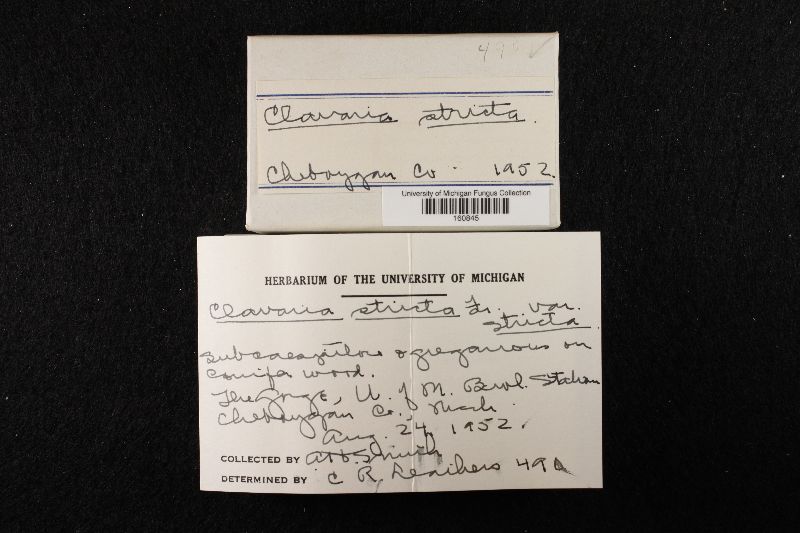 Clavaria stricta.
Cheboygan Co. 1952.
University of Michigan Fungus Collection
160845
HERBARIUM OF THE UNIVERSITY OF MICHIGAN
Clavaria stricta Fr. var.
stricta.
subcaespitose & gregarious on
conifer wood.
The Gorge, U. of M. Biol. Station
Cheboygan Co., Mich.
Aug. 24, 1952.
COLLECTED BY A H Smith
DETERMINED BY C R Leathers